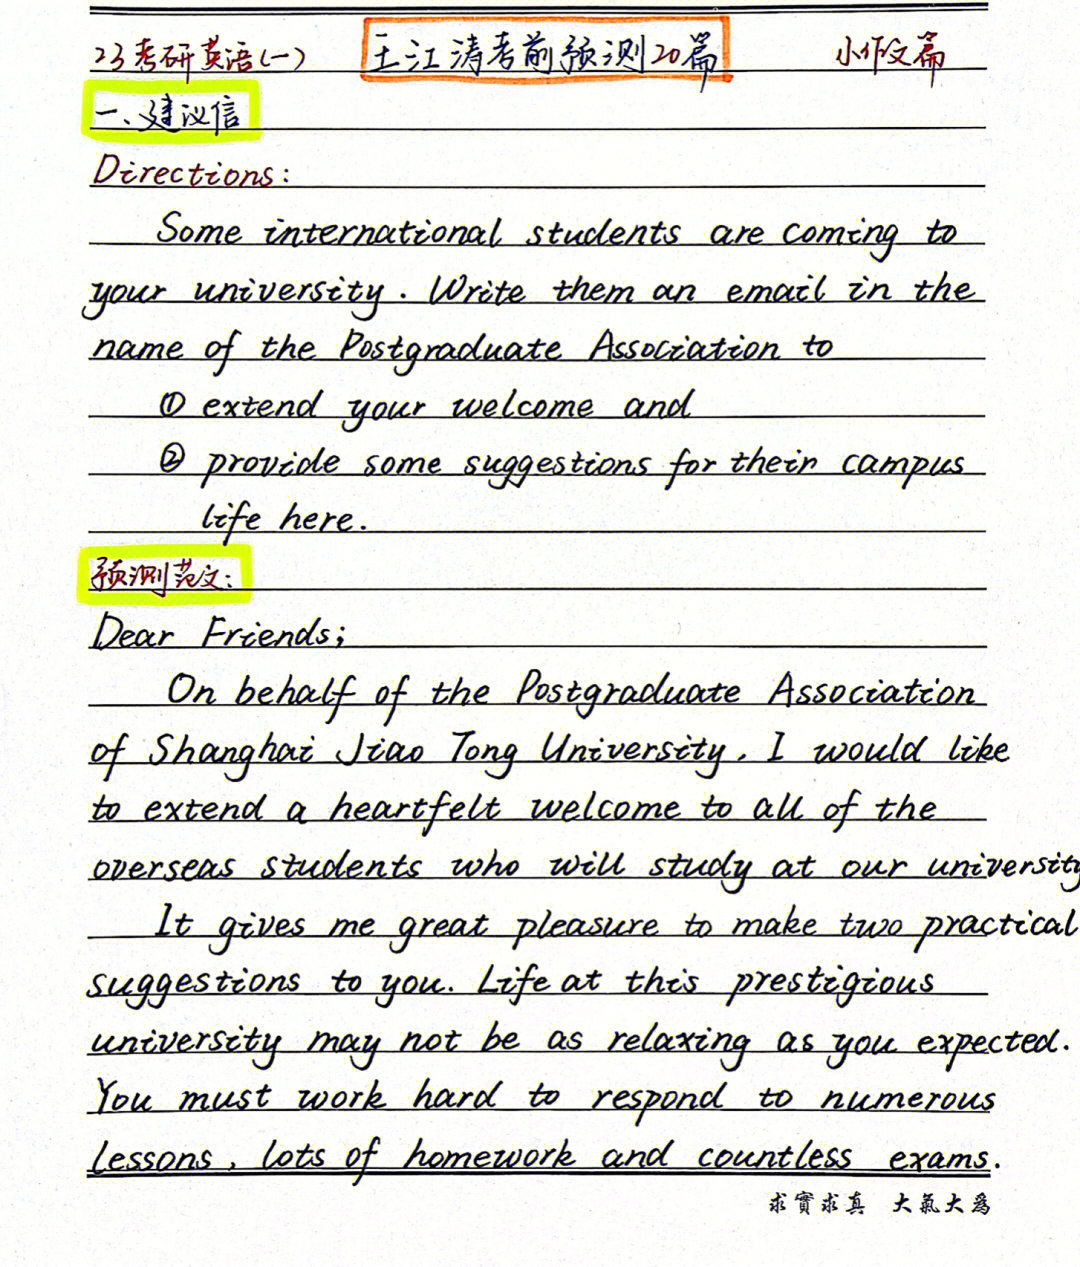 23考研英语(一) 王江涛考前预测20篇 小作文篇
一、建议信
Directions:
Some international students are coming to
your university. Write them an email in the
name of the Postgraduate Association to
① extend your welcome and
② provide some suggestions for their campus
life here.
预测范文:
Dear Friends;
On behalf of the Postgraduate Association
of Shanghai Jiao Tong University, I would like
to extend a heartfelt welcome to all of the
overseas students who will study at our university
It gives me great pleasure to make two practical
suggestions to you. Life at this prestigious
university may not be as relaxing as you expected.
You must work hard to respond to numerous
lessons, lots of homework and countless exams.
求實求真 大氣大為